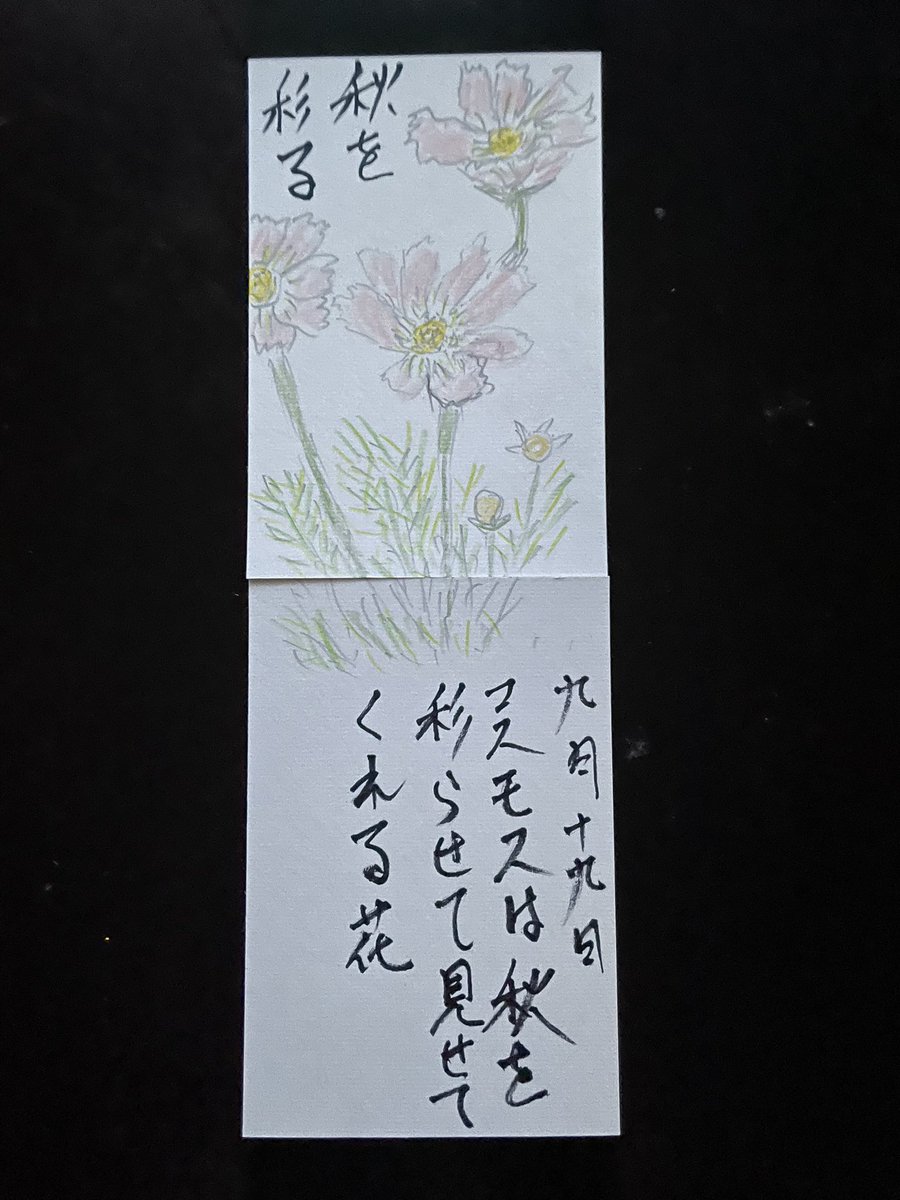 秋を
彩る
九月十九日
コスモスは秋を
彩らせて見せて
くれる花